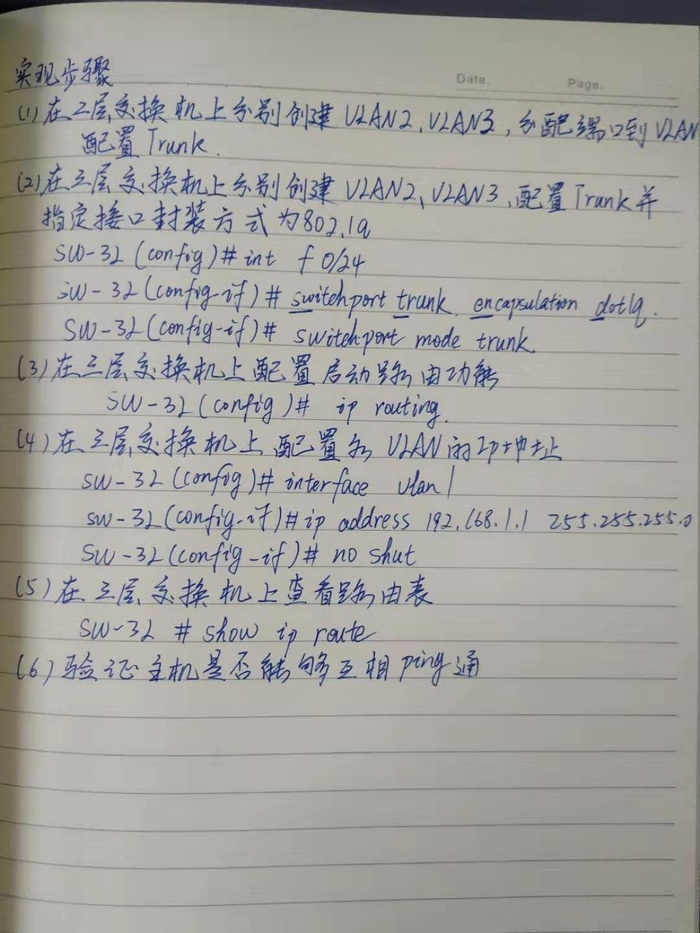 Date.
Page.
实现步骤
(1)在二层交换机上分别创建VLAN2,VLAN3,分配端口到VLAN
配置Trunk.
(2)在三层交换机上分别创建VLAN2、VLAN3,配置Trunk并
指定接口封装方式为802.1q
SW-3L(config)# int f 0/24
SW-3L(config-if)# switchport trunk encapsulation dot1q.
SW-3L(config-if)# switchport mode trunk.
(3)在三层交换机上配置启动路由功能
SW-3L(config)# ip routing.
(4)在三层交换机上配置各VLAN的Ip地址
SW-3L(config)# interface vlan 1
SW-3L(config-if)# ip address 192.168.1.1 255.255.255.0
SW-3L(config-if)# no shut
(5)在三层交换机上查看路由表
SW-3L # show ip route
(6)验证主机是否能够互相ping通